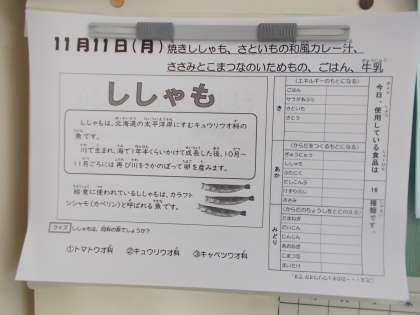 11月11日(月) 焼きししゃも、さといもの和風カレー汁、
ささみとこまつなのいためもの、ごはん、牛乳
ししゃも
ししゃもは、北海道の太平洋岸にすむキュウリウオ科の
魚です。
川で生まれ、海で1年半くらいかけて成長した後、10月〜
11月ごろには再び川をさかのぼって卵を産みます。
給食に使われているししゃもは、カラフト
シシャモ(カペリン)と呼ばれる魚です。
クイズ ししゃもは、何科の魚でしょうか?
①トマトウオ科 ②キュウリウオ科 ③キャベツウオ科
今日、使用している食品は
18
種類です。
き
(エネルギーのもとになる)
ごはん
さといも
さとう
あか
(からだをつくるもとになる)
ぎゅうにゅう
ししゃも
ぶたにく
だしこんぶ
ささみ
みどり
(からだのちょうしをととのえる)
たまねぎ
だいこん
にんじん
あおねぎ
こまつな